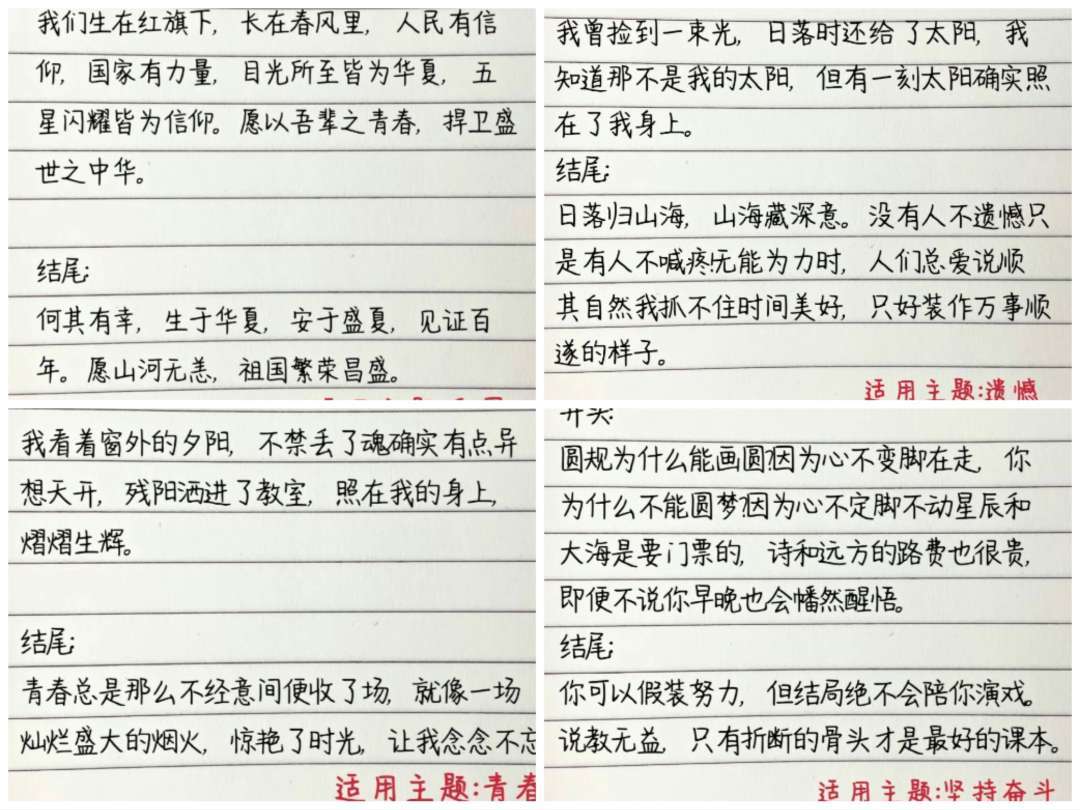 我们生在红旗下，长在春风里，人民有信
仰，国家有力量，目光所至皆为华夏，五
星闪耀皆为信仰。愿以吾辈之青春，捍卫盛
世之中华。
结尾：
何其有幸，生于华夏，安于盛夏，见证百
年。愿山河无恙，祖国繁荣昌盛。
我曾捡到一束光，日落时还给了太阳，我
知道那不是我的太阳，但有一刻太阳确实照
在了我身上。
结尾：
日落归山海，山海藏深意。没有人不遗憾只
是有人不喊疼无能为力时，人们总爱说顺
其自然我抓不住时间美好，只好装作万事顺
遂的样子。
适用主题:遗憾
我看着窗外的夕阳，不禁丢了魂确实有点异
想天开，残阳洒进了教室，照在我的身上，
熠熠生辉。
结尾：
青春总是那么不经意间便收了场，就像一场
灿烂盛大的烟火，惊艳了时光，让我念念不忘
适用主题:青春
开头：
圆规为什么能画圆因为心不变脚在走，你
为什么不能圆梦因为心不定脚不动星辰和
大海是要门票的，诗和远方的路费也很贵，
即便不说你早晚也会幡然醒悟。
结尾：
你可以假装努力，但结局绝不会陪你演戏。
说教无益，只有折断的骨头才是最好的课本。
适用主题:坚持奋斗